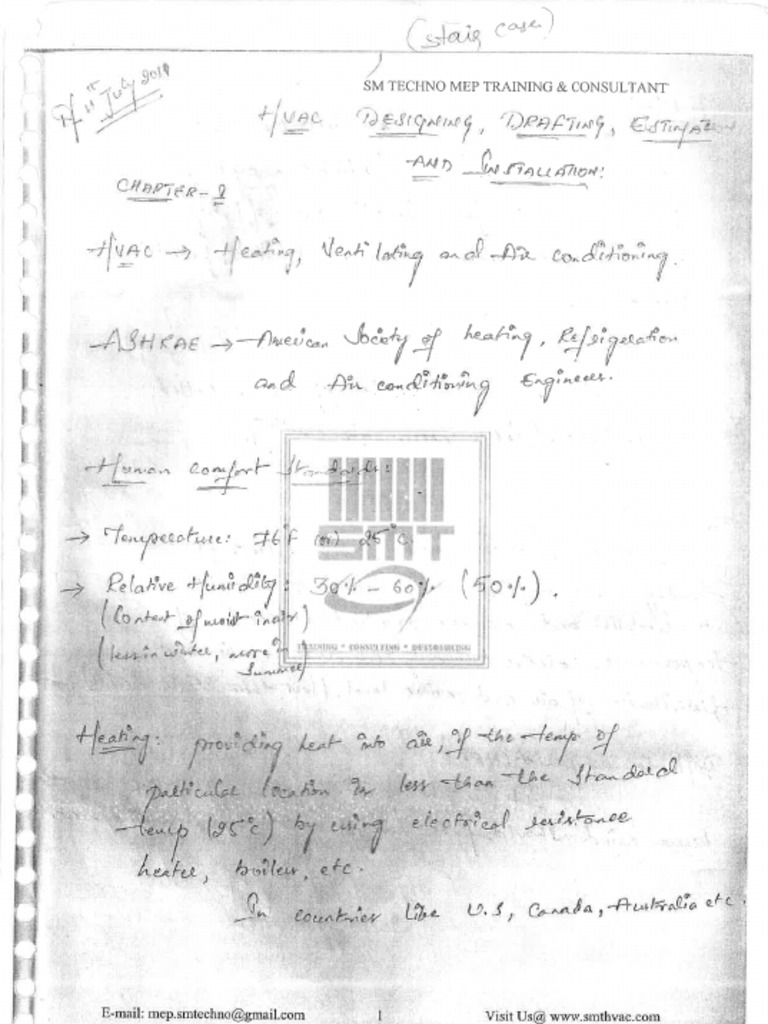 (stair case)
11th July 2011
SM TECHNO MEP TRAINING & CONSULTANT
HVAC DESIGNING, DRAFTING, ESTIMATION
AND INSTALLATION:
CHAPTER-1
HVAC → Heating, Ventilating and Air conditioning.
ASHRAE → American Society of heating, Refrigeration
and Air conditioning Engineers.
Human comfort Standards:
→ Temperature: 76°F (or) 25°C.
SMT
→ Relative Humidity: 30% – 60% (50%).
(Content of moist in air)
(less in winter, more in
Summer)
TRAINING * CONSULTING * OUTSOURCING
Heating: providing heat into air, if the temp of
particular location is less than the Standard
temp (25°C) by using electrical resistance
heater, boiler, etc.
In countries like U.S, Canada, Australia etc.
E-mail: mep.smtechno@gmail.com 1 Visit Us@ www.smthvac.com